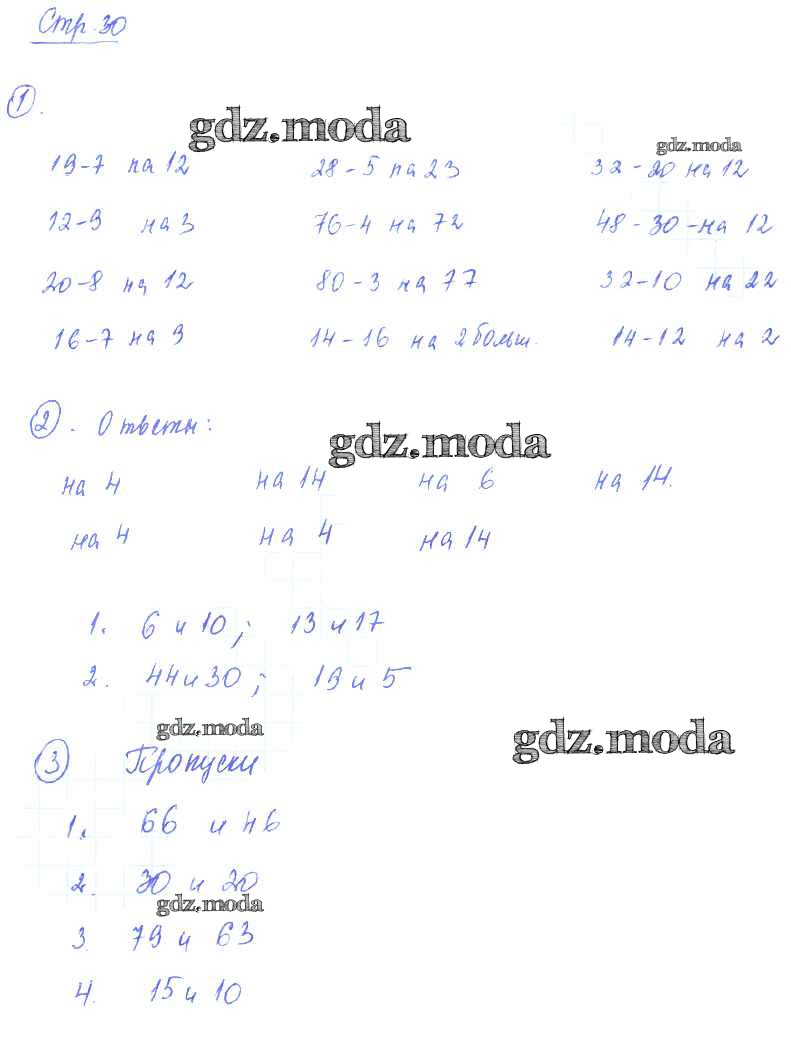 Стр. 30
1.
gdz.moda
gdz.moda
19-7 на 12 28-5 на 23 32-20 на 12
12-9 на 3 76-4 на 72 48-30-на 12
20-8 на 12 80-3 на 77 32-10 на 22
16-7 на 9 14-16 на 2 больш. 14-12 на 2
2. Ответы:
gdz.moda
на 4 на 14 на 6 на 14.
на 4 на 4 на 14
1. 6 и 10; 13 и 17
2. 44 и 30; 19 и 5
gdz.moda
gdz.moda
3 Пропуски
1. 66 и 46
2. 30 и 20
gdz.moda
3. 79 и 63
4. 15 и 10